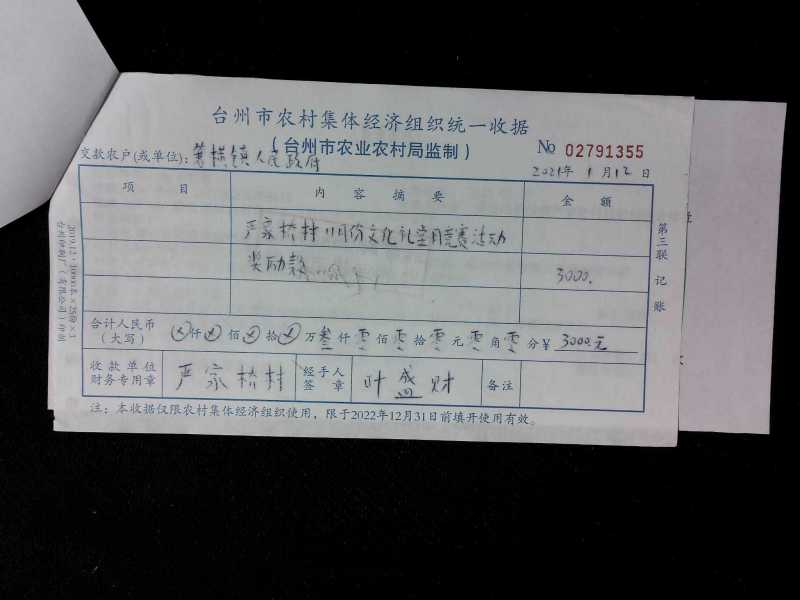 台州市农村集体经济组织统一收据
(台州市农业农村局监制)
No 02791355
交款农户(或单位): 箬横镇人民政府
2021年 1月12日
项 目 内 容 摘 要 金 额
严家桥村11月份文化礼堂月竞赛活动
奖励款 3000.
合计人民币(大写) ⊗仟⊗佰⊗拾⊗万叁仟零佰零拾零元零角零分¥ 3000.元
收款单位财务专用章 严家桥村 经手人签章 叶盛财 备注
注:本收据仅限农村集体经济组织使用,限于2022年12月31日前填开使用有效。
第三联 记账